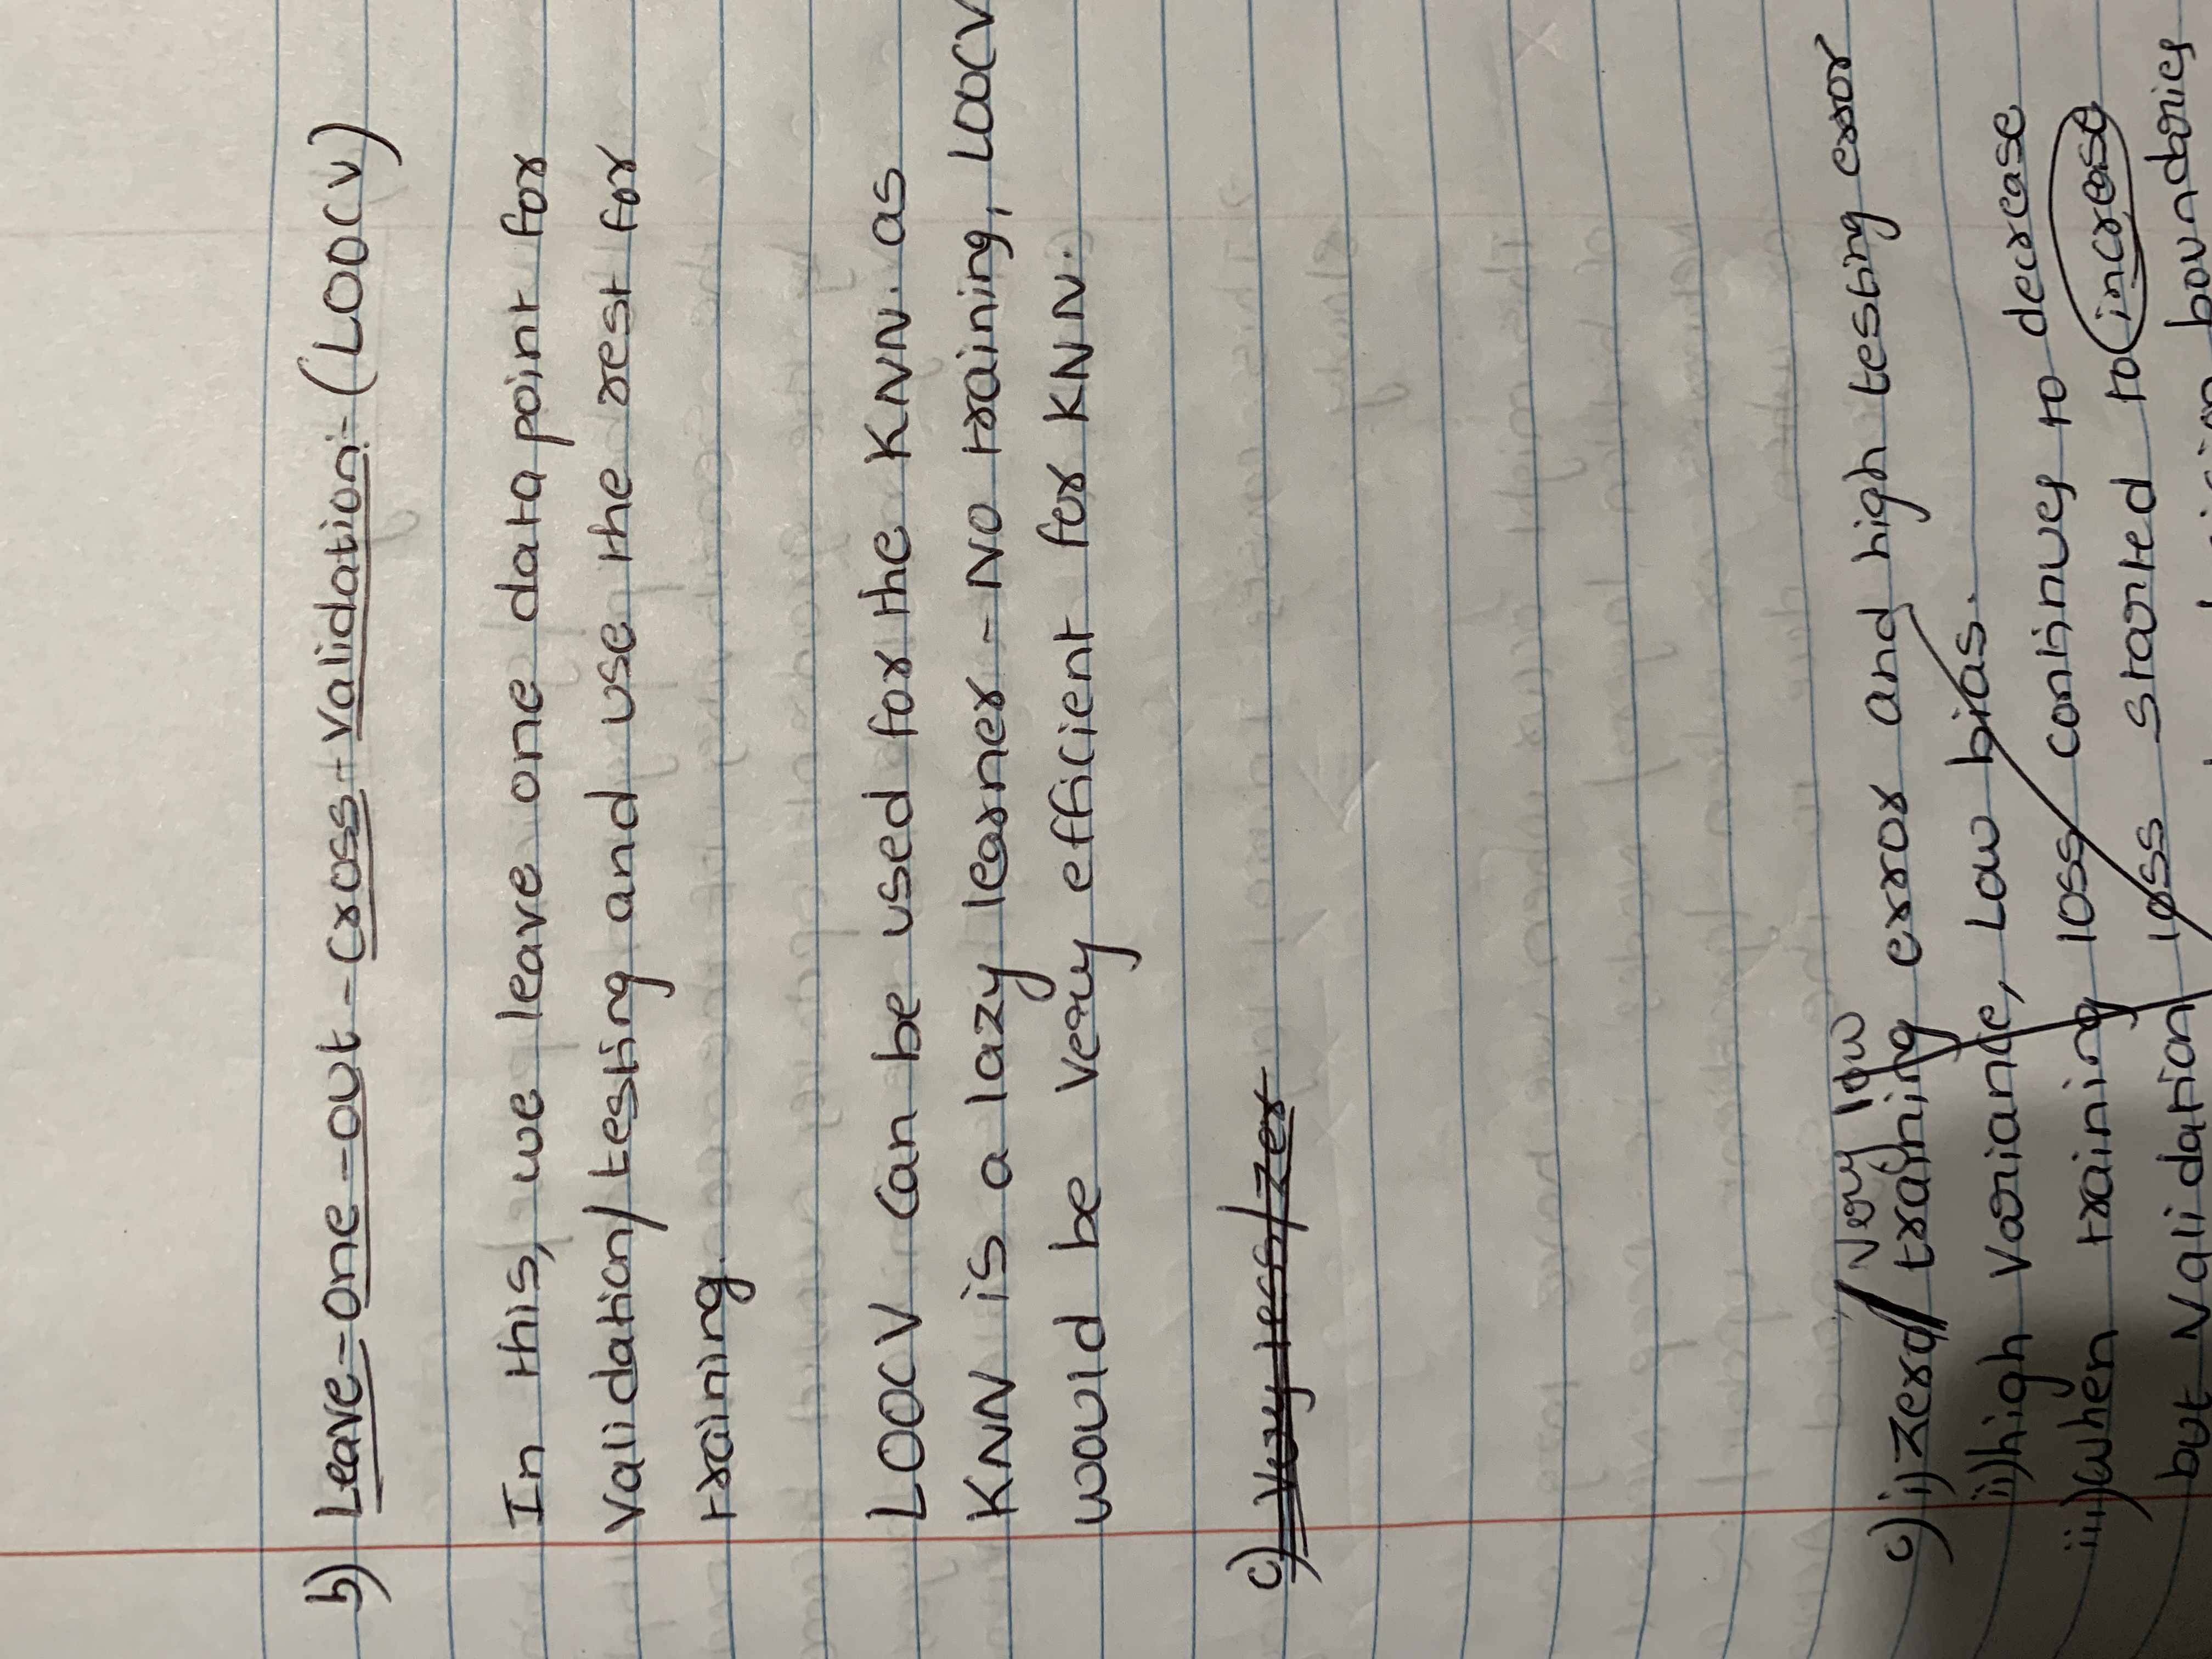 b) Leave-one-out-cross-Validation:- (LOOCV)
In this, we leave one data point for
Validation/testing and use the rest for
training.
LOOCV can be used for the KNN. as
KNN is a lazy learner - No training, LOOCV
would be very efficient for KNN.
c) Very less/zer
very low
c) i) zero/ training error and high testing error
ii) high Variance, Low bias.
iii) when training loss continues to decrease
but Validation loss started to increase
boundaries